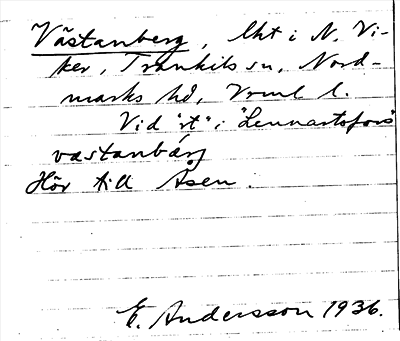 Västanberg, lht i N. Vi-
ker, Trankils sn, Nord-
marks hd, Vrml l.
Vid "st" i "Lennartsfors"
vastanbärj
Hör till Åsen.
E. Andersson 1936.